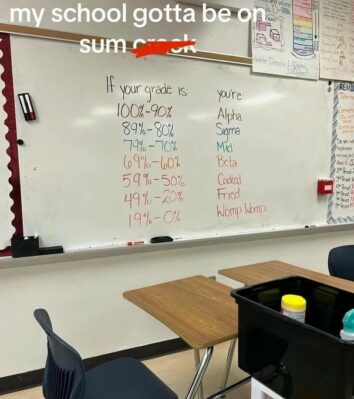 my school gotta be on
sum crack
If your grade is: you're:
100%-90% Alpha
89%-80% Sigma
79%-70% Mid
69%-60% Beta
59%-50% Cooked
49%-20% Fried
19%-0% Womp Womp